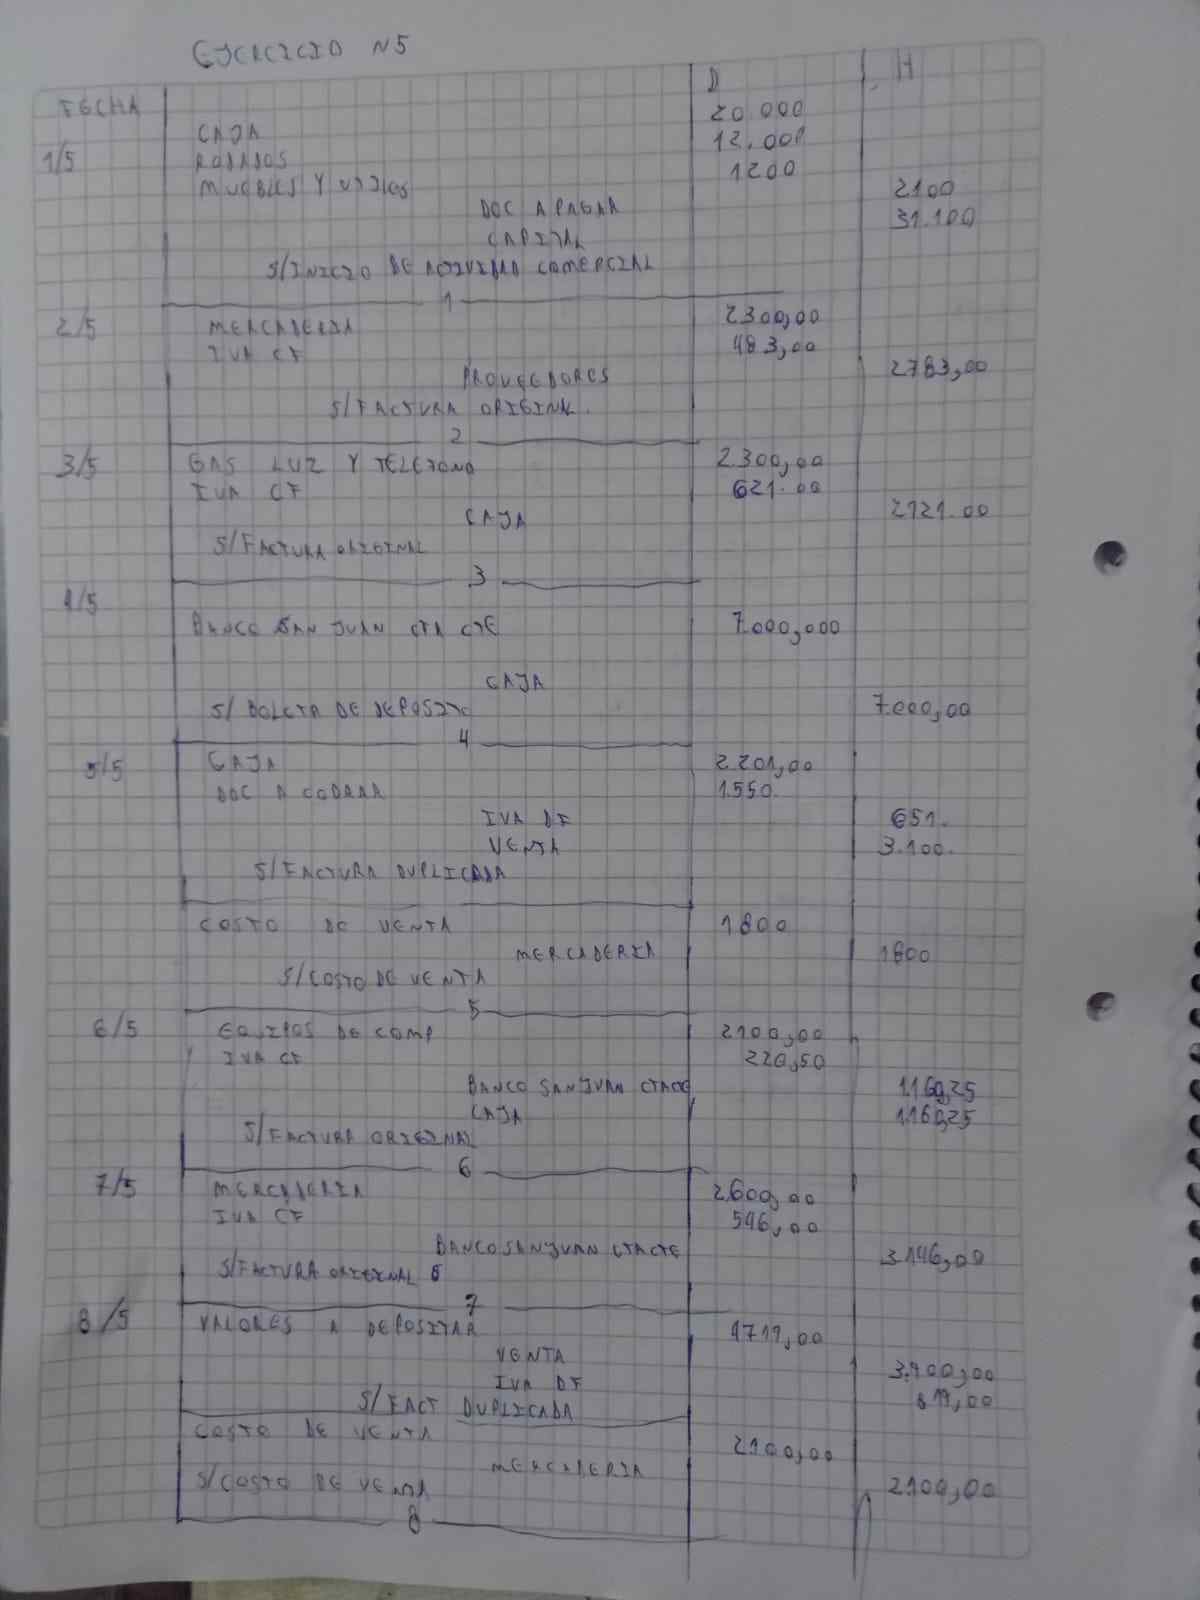 EJERCICIO N5
FECHA D H
CAJA 20.000
1/5 RODADOS 12.000
MUEBLES Y UTILES 1200
DOC A PAGAR 2100
CAPITAL 31.100
S/INICIO DE ACTIVIDAD COMERCIAL
1
2/5 MERCADERIA 2300,00
IVA CF 483,00
PROVEEDORES 2783,00
S/FACTURA ORIGINAL.
2
3/5 GAS LUZ Y TELEFONO 2.300,00
IVA CF 621.00
CAJA 2921.00
S/FACTURA ORIGINAL
3
4/5
BANCO SAN JUAN CTA CTE 7.000,000
CAJA
S/ BOLETA DE DEPOSITO 7.000,00
4
5/5 CAJA 2.201,00
DOC A COBRAR 1.550.
IVA DF 651.
VENTA 3.100.
S/FACTURA DUPLICADA
COSTO DE VENTA 1800
MERCADERIA 1800
S/COSTO DE VENTA
5
6/5 EQUIPOS DE COMP 2100,00
IVA CF 220,50
BANCO SAN JUAN CTACTE 1.160,25
CAJA 1.160,25
S/FACTURA ORIGINAL
6
7/5 MERCADERIA 2.600,00
IVA CF 546,00
BANCO SAN JUAN CTACTE 3.146,00
S/FACTURA ORIGINAL
7
8/5 VALORES A DEPOSITAR 4719,00
VENTA 3.900,00
IVA DF 819,00
S/FACT DUPLICADA
COSTO DE VENTA 2100,00
MERCADERIA
S/COSTO DE VENTA 2100,00
8